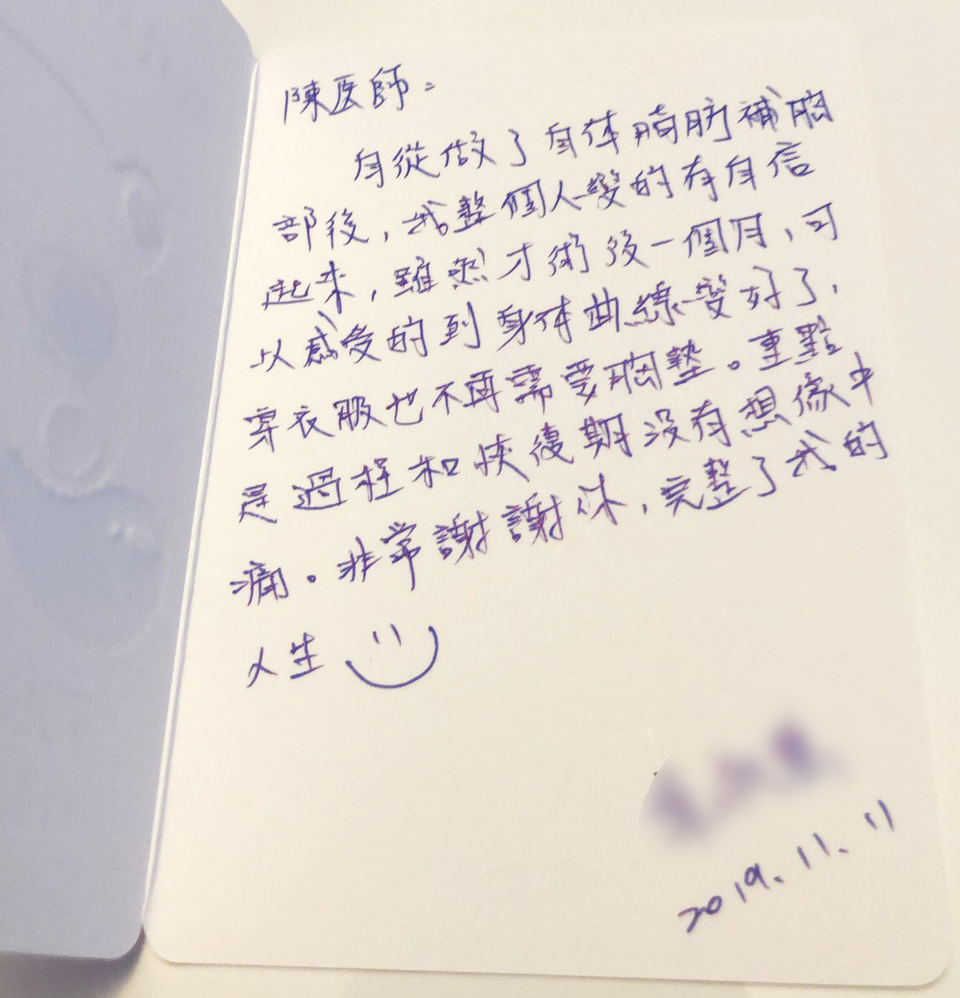 陳医師：
自從做了自体脂肪補胸
部後，我整個人變的有自信
起來，雖然才術後一個月，可
以感受的到身体曲線變好了，
穿衣服也不再需要胸墊。重點
是過程和恢復期沒有想像中
痛。非常謝謝你，完整了我的
人生
2019.11.11